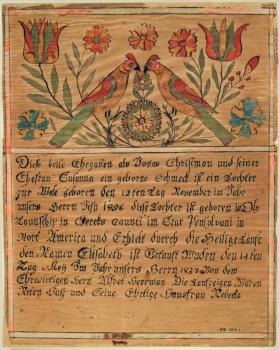 Diese beite Ehegatten als Donas Christman und seiner
Ehefrau Susanna ein geborne Schmeck ist ein Tochter
zur Welt geboren den 12ten Tag November im Jahr
unsers Herrn Jesu 1806 diese Tochter ist geboren in
Taunschip in Berks Caunti im Stat Pensilvani in
Nort America und Erhielt durch die Heilige Taufe
den Namen Elisabeth ist Getauft Wuden den 14ten
Tag Mey Im Jahr unsers Herrn Von dem
Ehrwirtigen Herrn Alfred Herrman Die Taufzeigen Waren
und Seine Ehrlige Hausfrau Rebecka